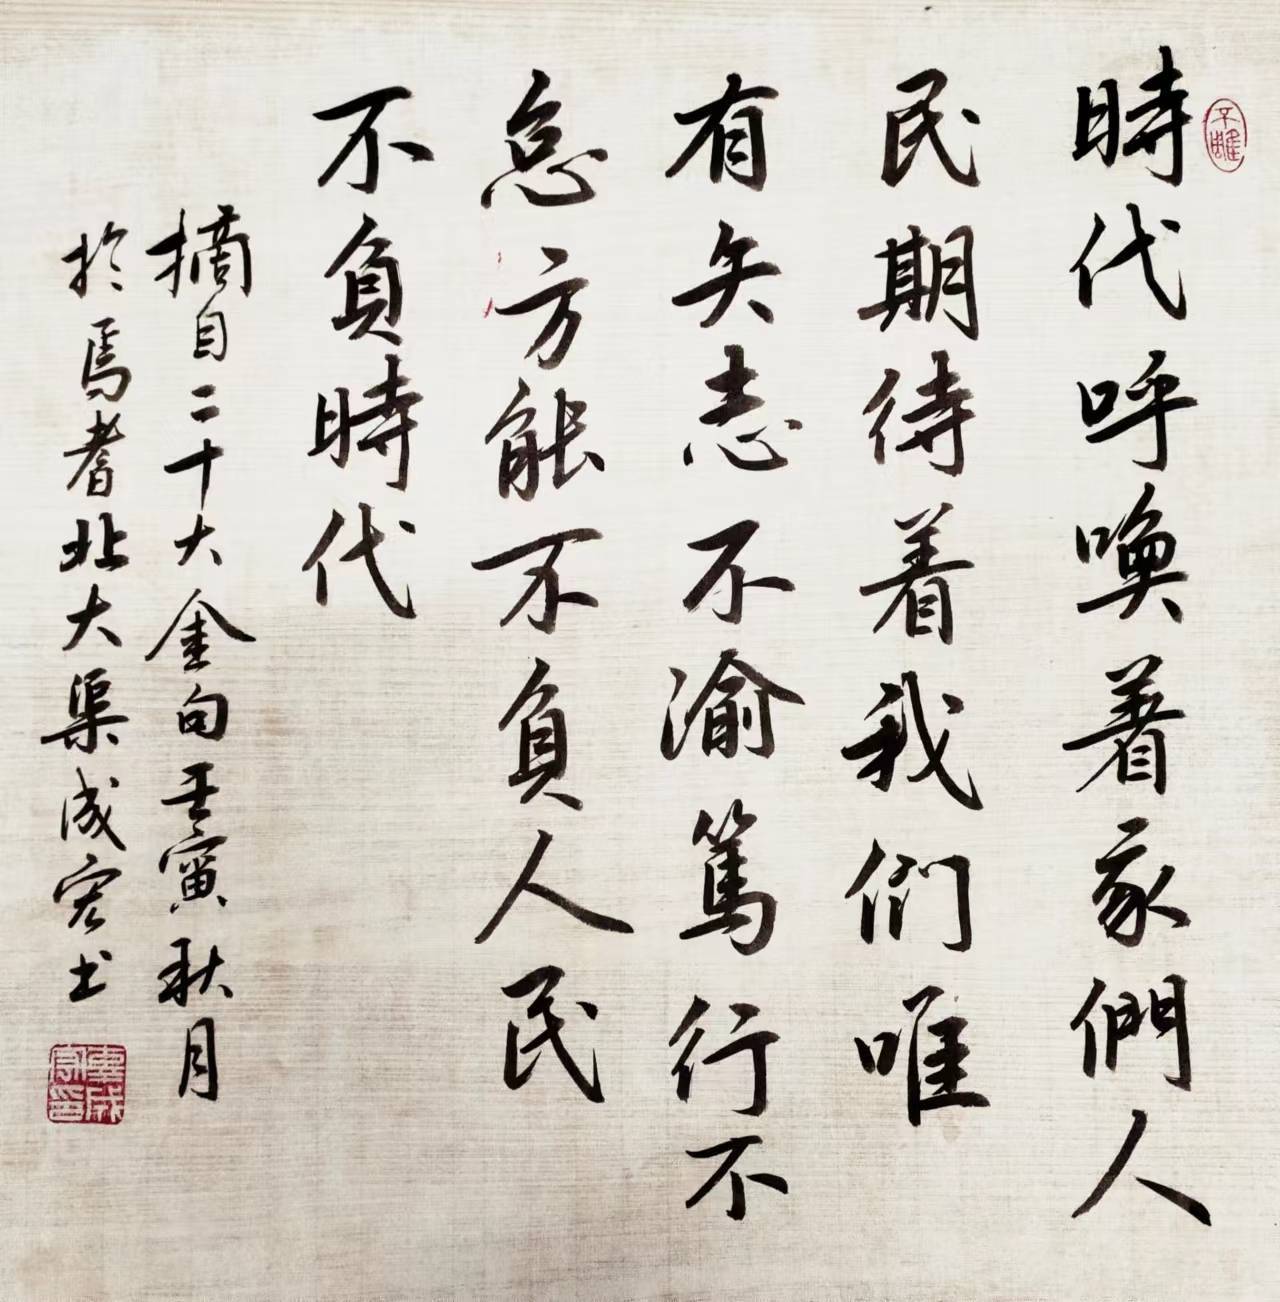 時代呼喚着家們人
民期待着我们唯
有矢志不渝篤行不
怠方能不負人民
不負時代
摘自二十大金句壬寅秋月
於焉耆北大渠成宏书